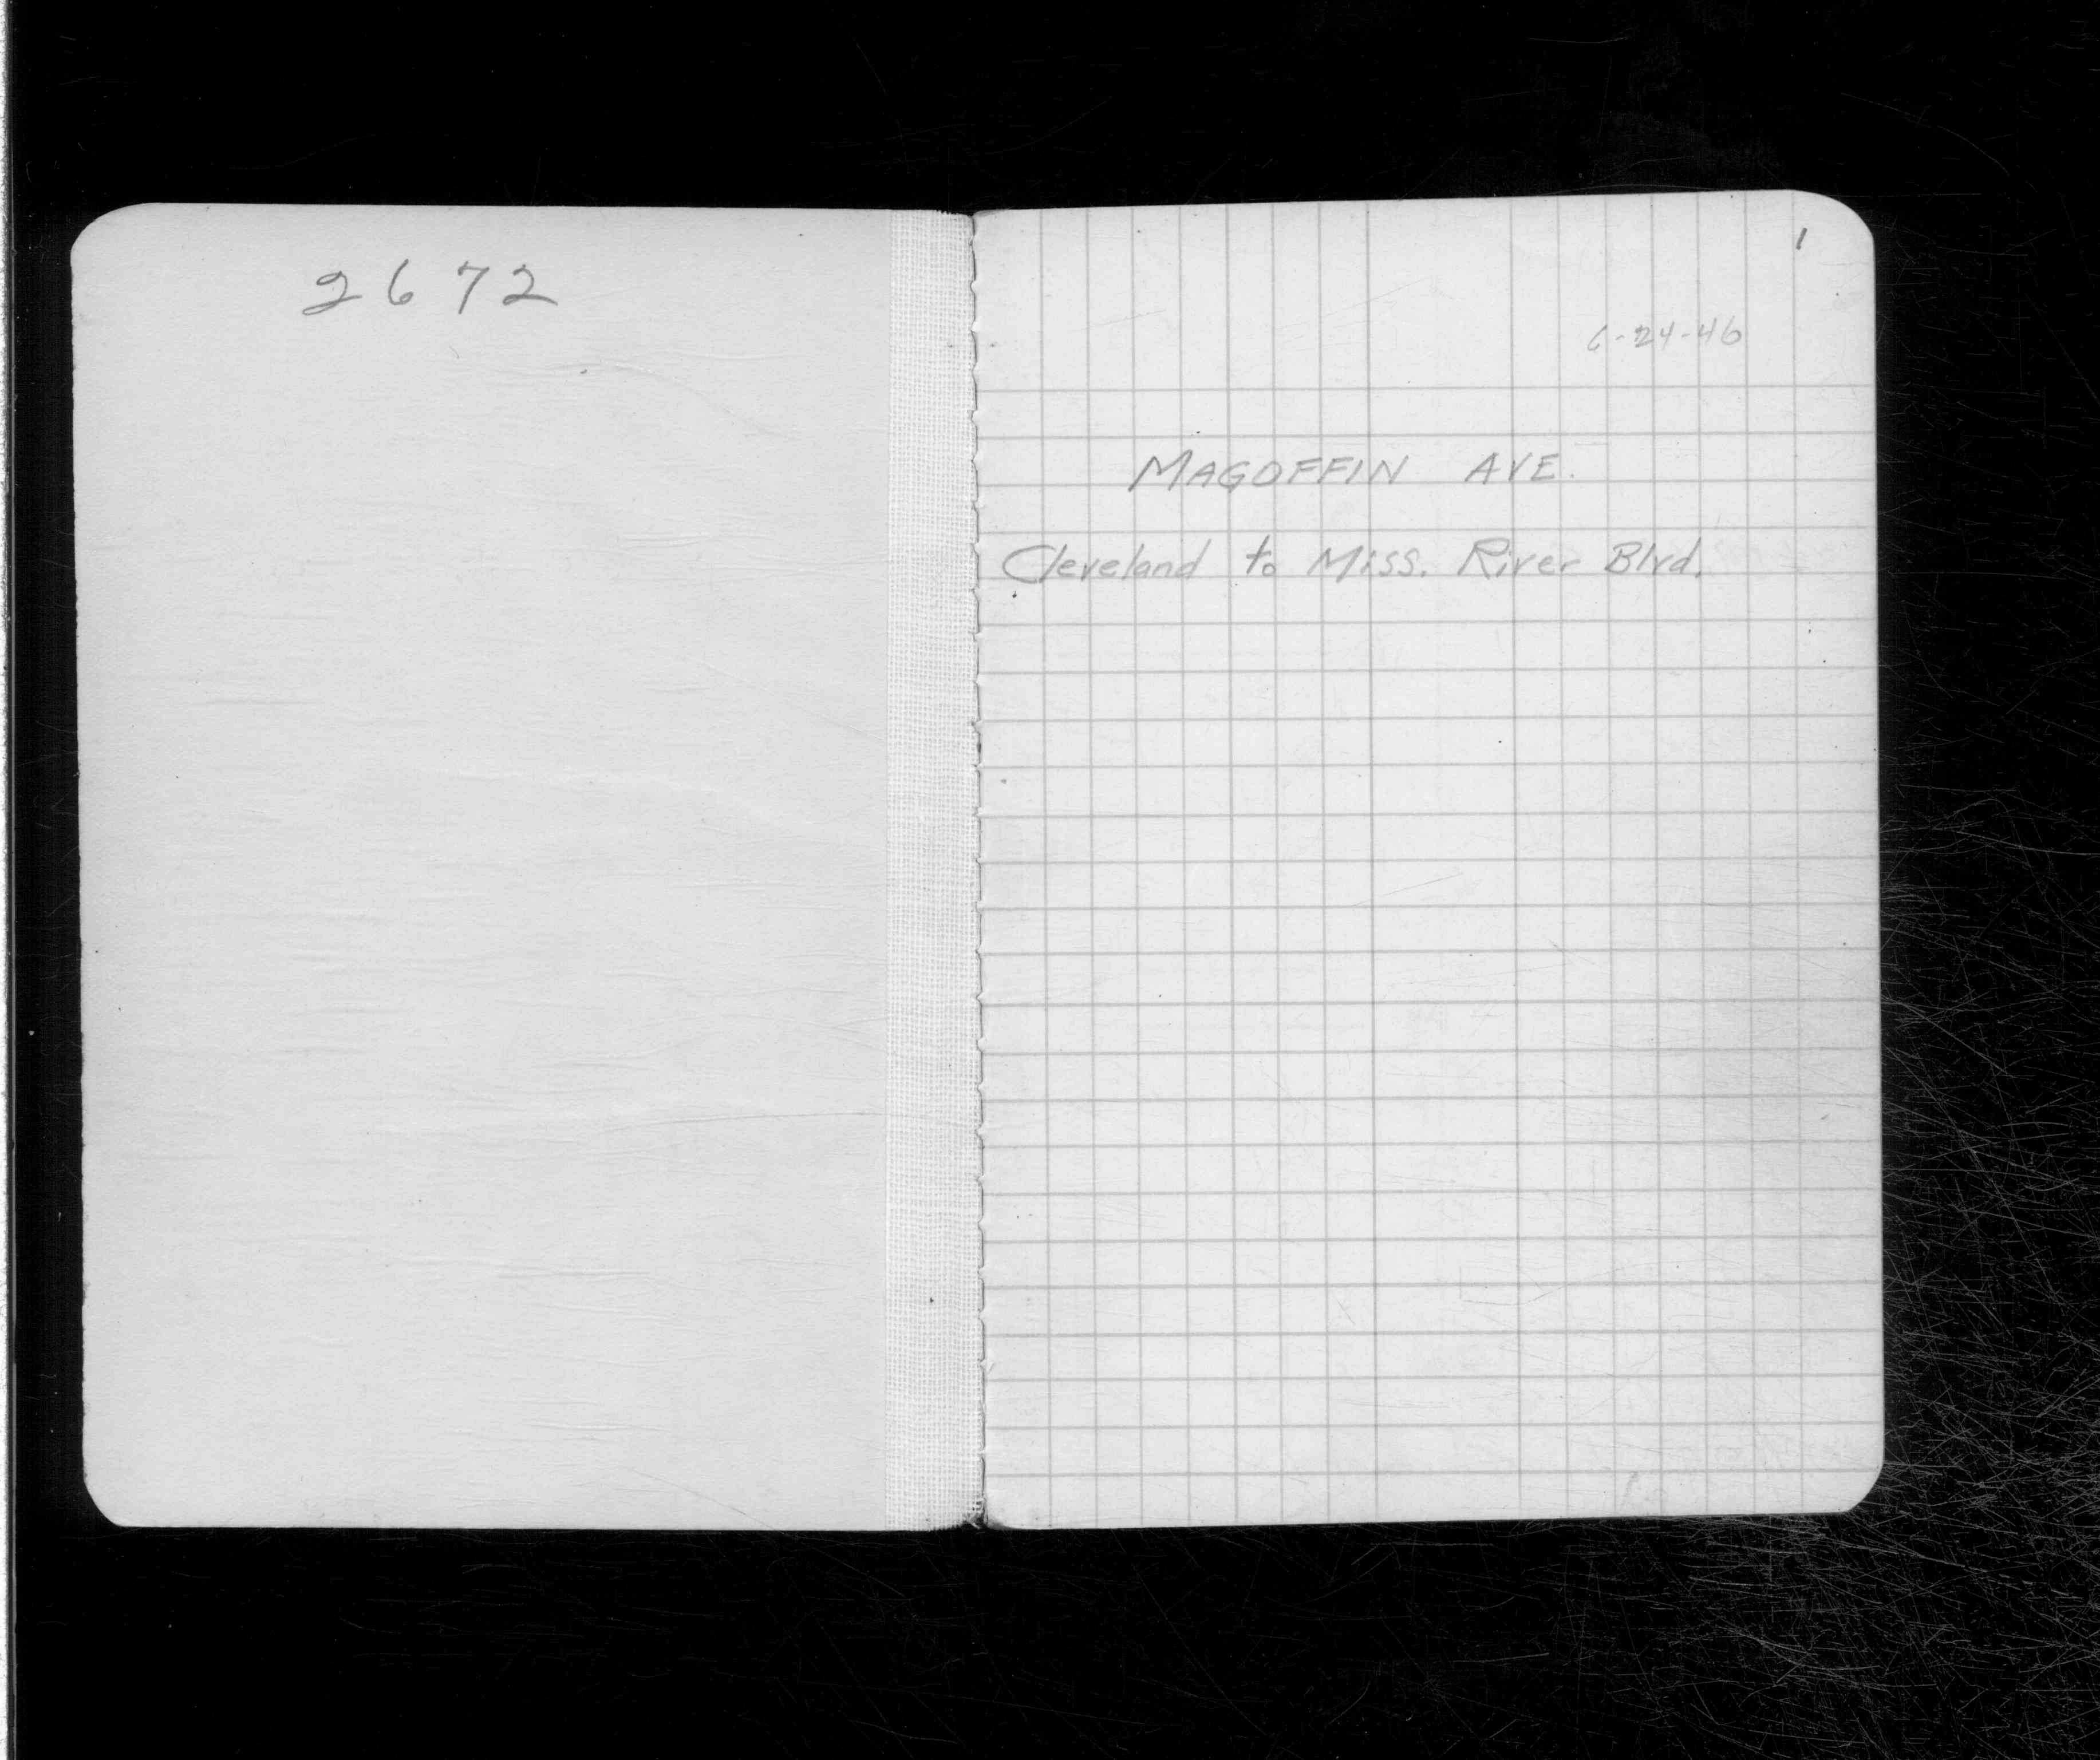 2672
1
6-24-46
MAGOFFIN AVE.
Cleveland to Miss. River Blvd.